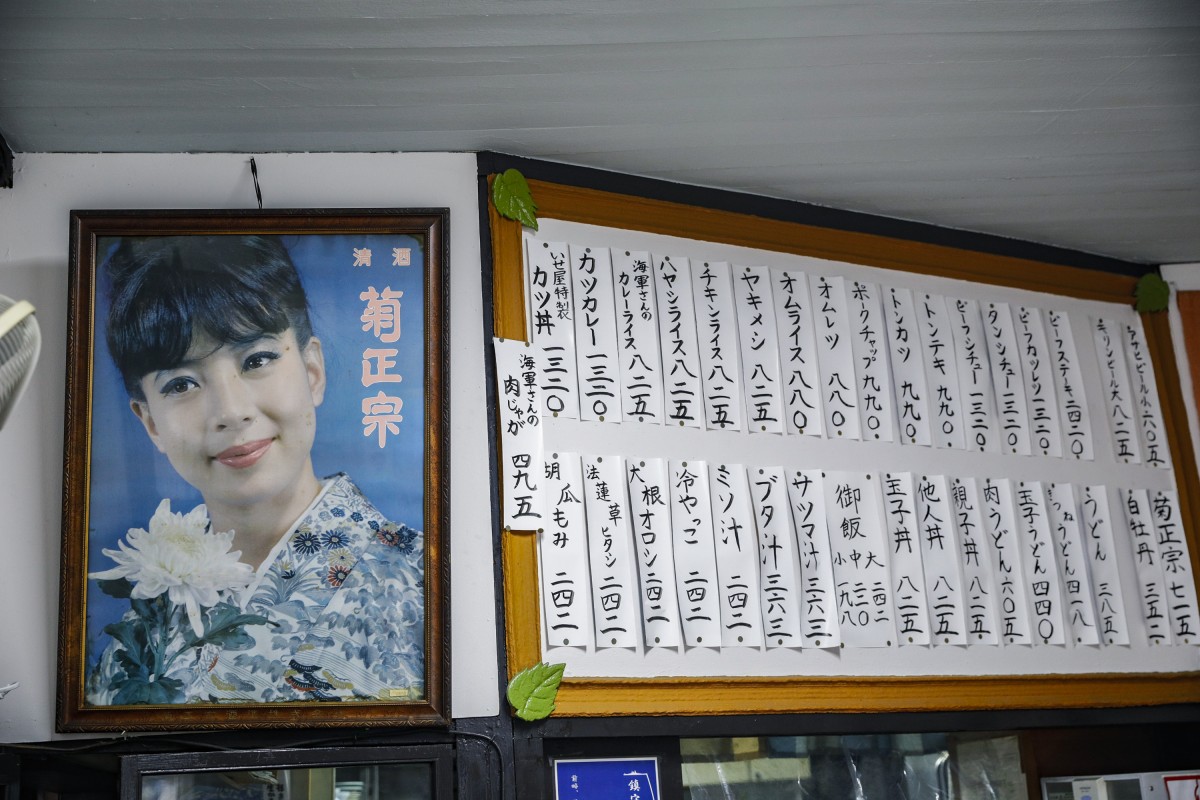 清酒
菊正宗
アサヒビール小 六〇五
キリンビール大 八二五
ビーフステキ 二四二〇
ビーフカツレツ 一三二〇
タンシチュー 一三二〇
ビーフシチュー 一三二〇
トンテキ 九九〇
トンカツ 九九〇
ポークチャップ 九九〇
オムレツ 八八〇
オムライス 八八〇
ヤキメシ 八二五
チキンライス 八二五
ハヤシライス 八二五
海軍さんの
カレーライス 八二五
カツカレー 一三二〇
いせ屋特製
カツ丼 一三二〇
海軍さんの
肉じゃが 四九五
菊正宗 七一五
白牡丹 三五二
うどん 三八五
きつねうどん 四一八
玉子うどん 四四〇
肉うどん 六〇五
親子丼 八二五
他人丼 八二五
玉子丼 八二五
御飯
大 二四二
中 二二〇
小 一九八
サツマ汁 三六三
ブタ汁 三六三
ミソ汁 二四二
冷やっこ 二四二
大根オロシ 二四二
法蓮草ヒタシ 二四二
胡瓜もみ 二四二